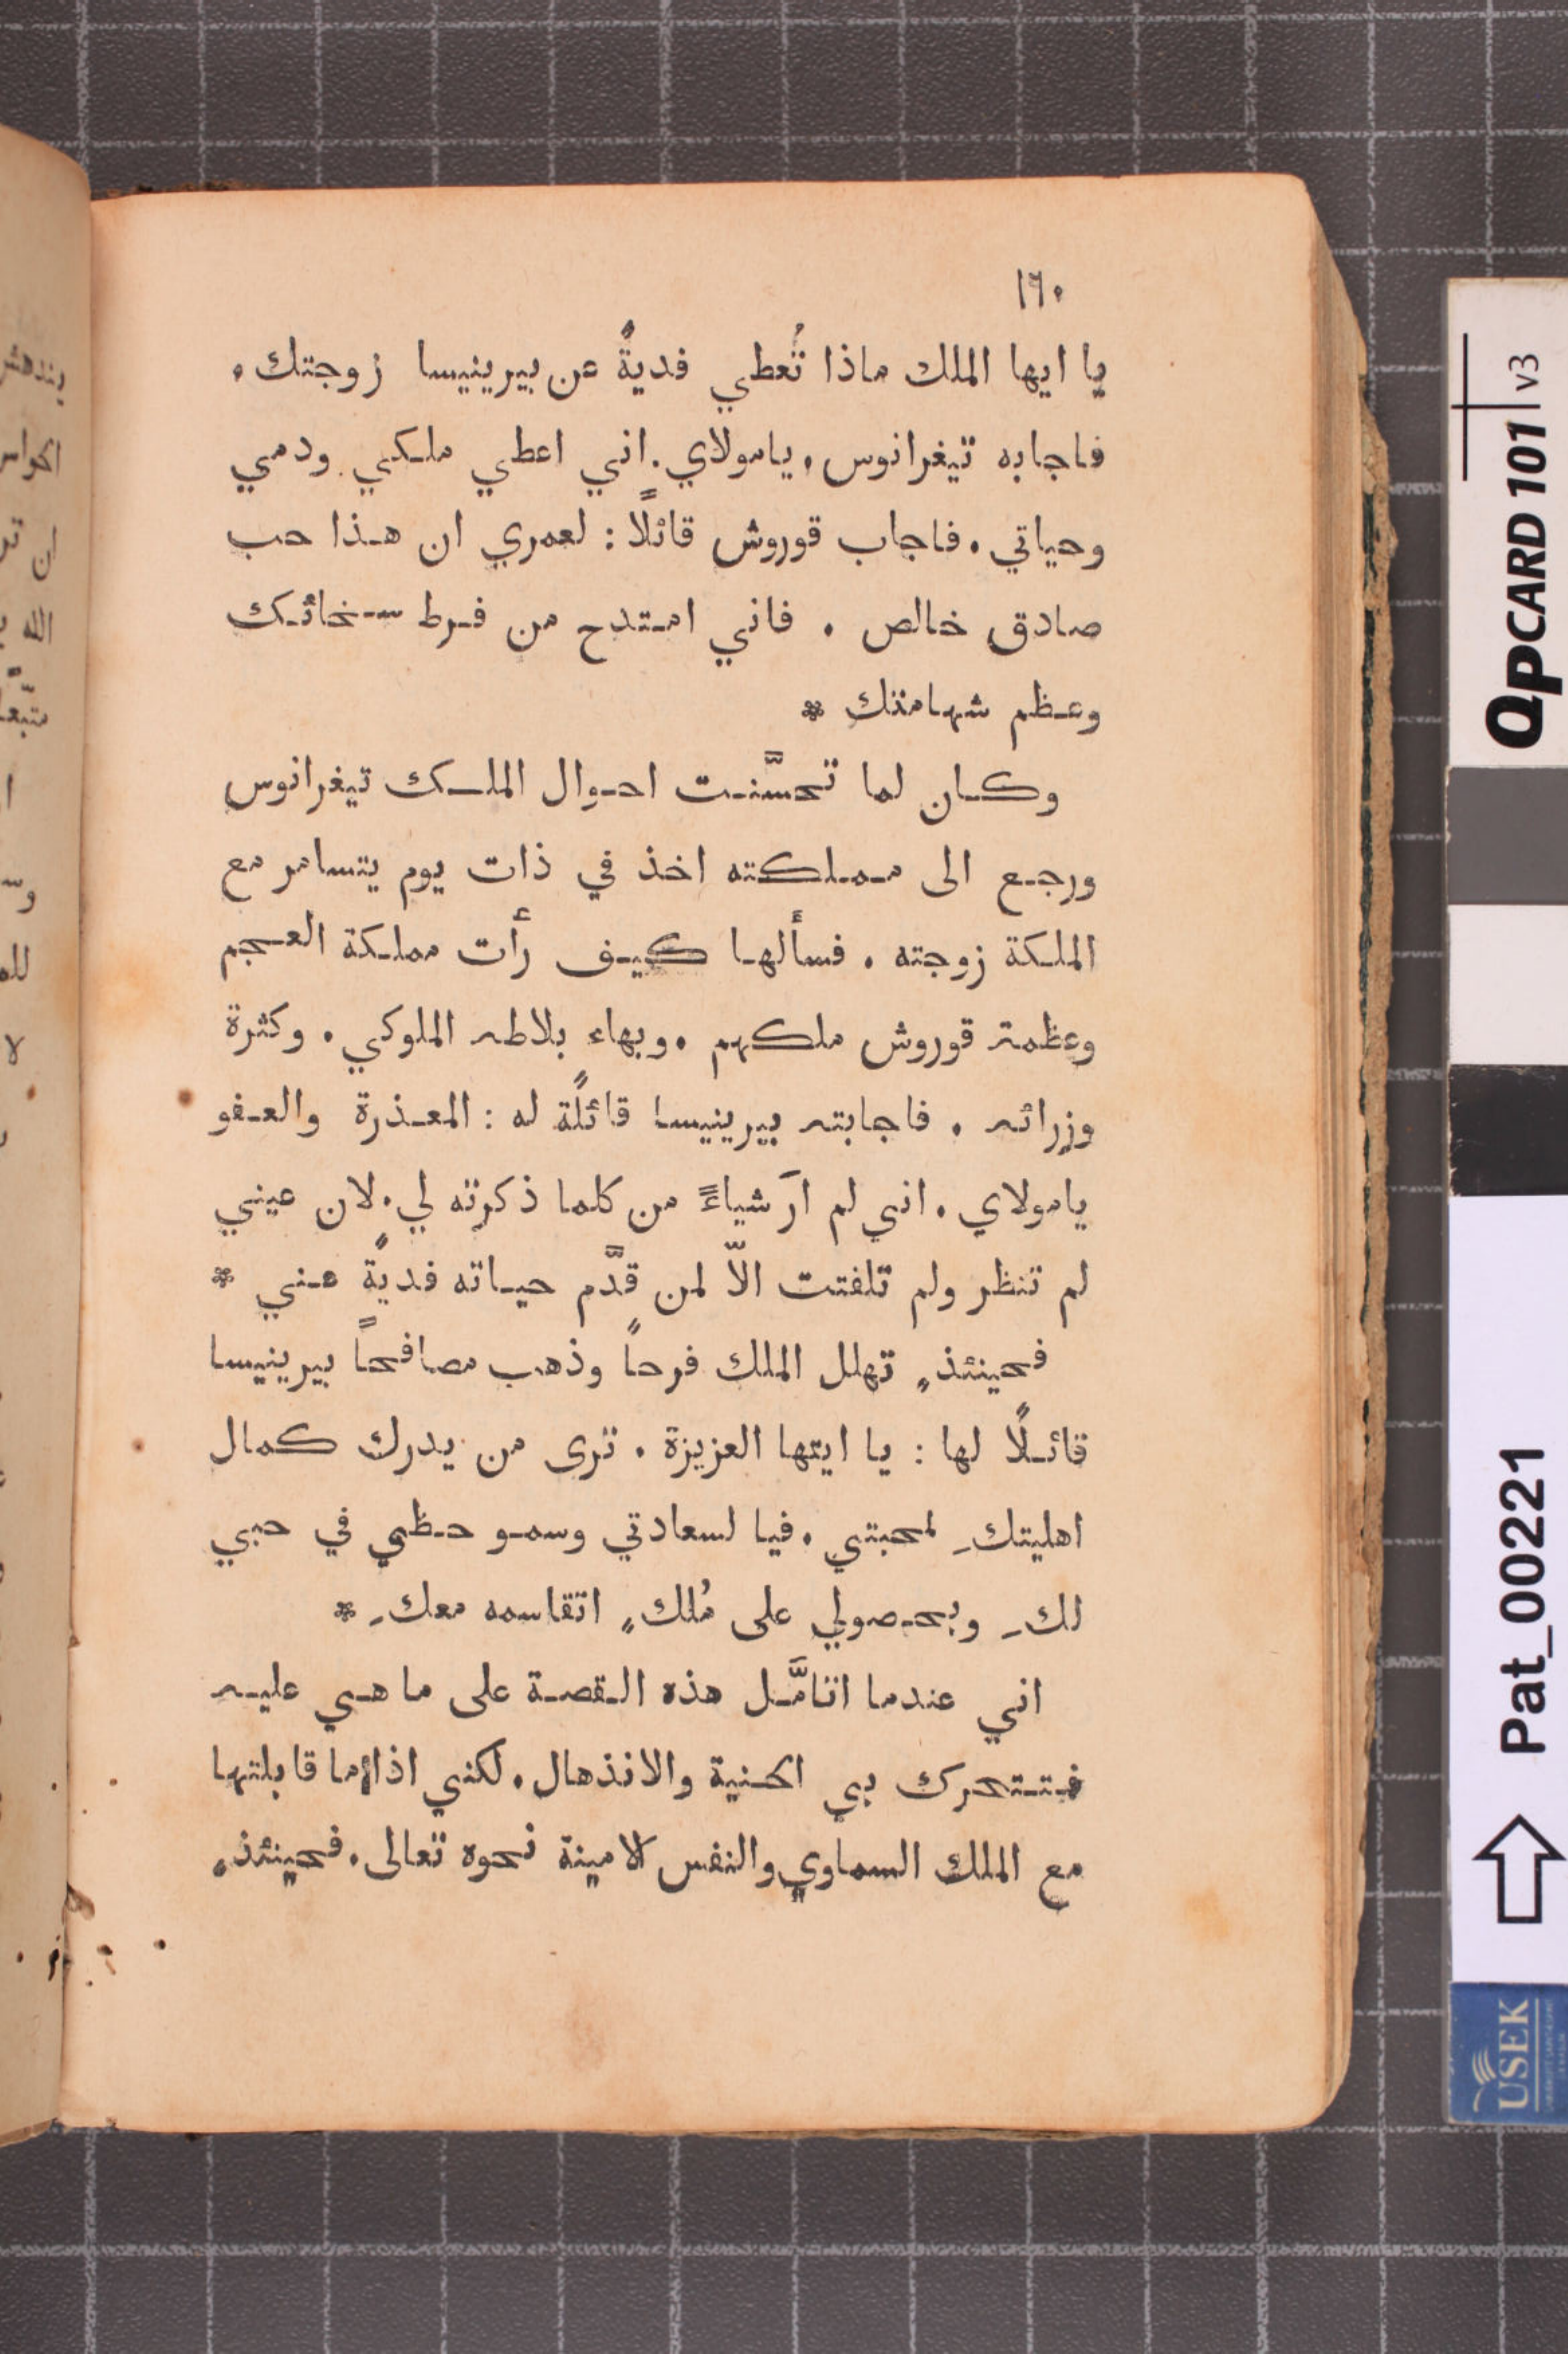 ١٦٠
يا ايها الملك ماذا تُعطي فديةً عن بيرينيسا زوجتك.
فاجابه تيغرانوس. يامولاي. اني اعطي ملكي ودمي
وحياتي. فاجاب قوروش قائلًا: لعمري ان هذا حب
صادق خالص. فاني امتدح من فرط سخائك
وعظم شهامتك *
وكان لما تحسَّنت احوال الملك تيغرانوس
ورجع الى مملكته اخذ في ذات يوم يتسامر مع
الملكة زوجته. فسألها كيف رأت مملكة العجم
وعظمة قوروش ملكهم. وبهاء بلاطه الملوكي. وكثرة
وزرائه. فاجابته بيرينيسا قائلةً له: المعذرة والعفو
يامولاي. اني لم ارَ شياءً من كلما ذكرته لي. لان عيني
لم تنظر ولم تلفتت الّا لمن قدَّم حياته فديةً عني *
فحينئذٍ تهلل الملك فرحاً وذهب مصافحاً بيرينيسا
قائلًا لها: يا ايتها العزيزة. ترى من يدرك كمال
اهليتكِ لمحبتي. فيا لسعادتي وسمو حظي في حبي
لكِ وبحصولي على مُلكٍ اتقاسمه معكِ *
اني عندما اتامَّل هذه القصة على ما هي عليه
فتتحرك بي الحنية والانذهال. لكني اذا ما قابلتها
مع الملك السماوي والنفس الامينة نحوه تعالى. فحينئذٍ
QPCARD 101 v3
Pat_00221
USEK